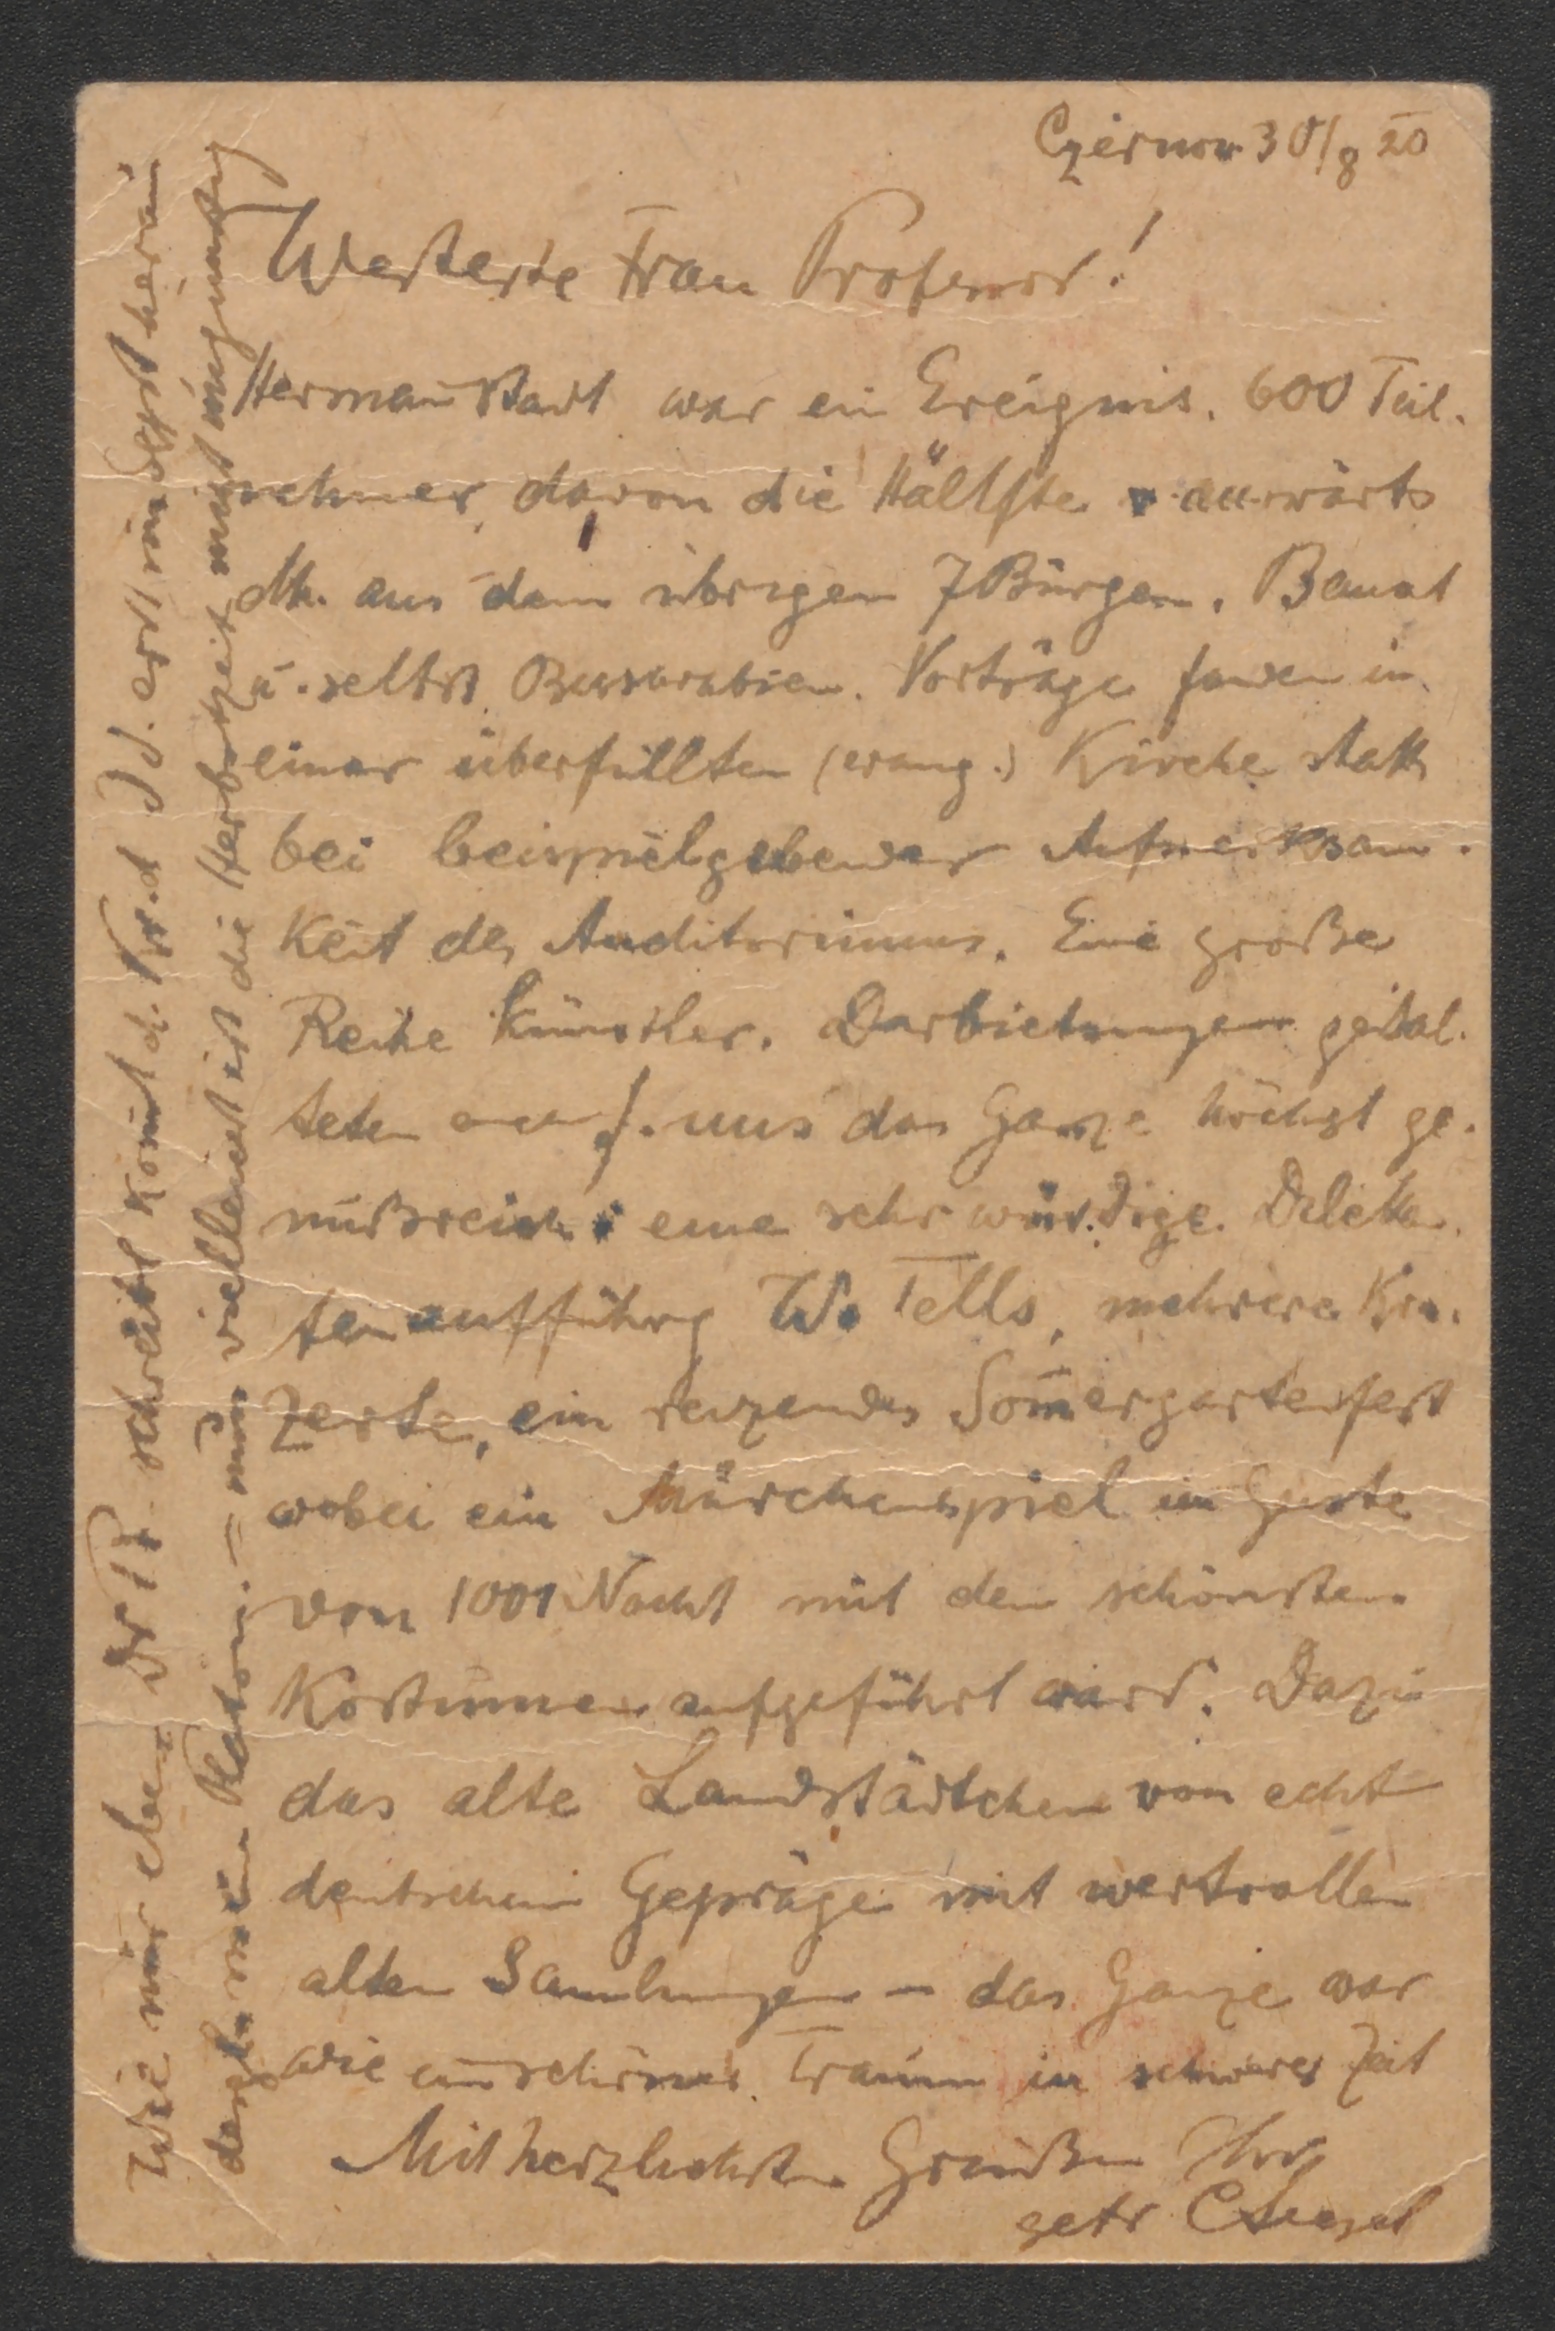 Czernow 30/8 20
Werteste Frau Professor!
Hermanstadt war ein Ereignis. 600 Teil-
nehmer, davon die Hälfte auswärts
dh. aus dem übrigen 7Bürgen, Banat
u. selbst Bessarabien. Vorträge fanden in
einer überfüllten (evang.) Kirche statt
bei beispielgebender Aufmerksam-
keit des Auditoriums. Eine große
Reihe künstler. Darbietungen gestal-
teten f. uns das Ganze höchst ge-
nußreich: eine sehr würdige Dilettan-
tenaufführg W. Tells, mehrere Kon-
zerte, ein reizendes Som̄ergartenfest
wobei ein Märchenspiel im Geiste
von 1001 Nacht mit den schönsten
Kostümen aufgeführt ward. Dazu
das alte Landstädtchen von echt
deutschem Gepräge mit wertvollen
alten Samlungen – das Ganze war
wie ein schöner Traum in schwerer Zeit
Mit herzlichsten Grüßen Ihr
getr
Wie mir eben Dr schreibt kom̄t d. erst im Herbst
nun vielleicht ist die Herbstzeit nicht ungünstig